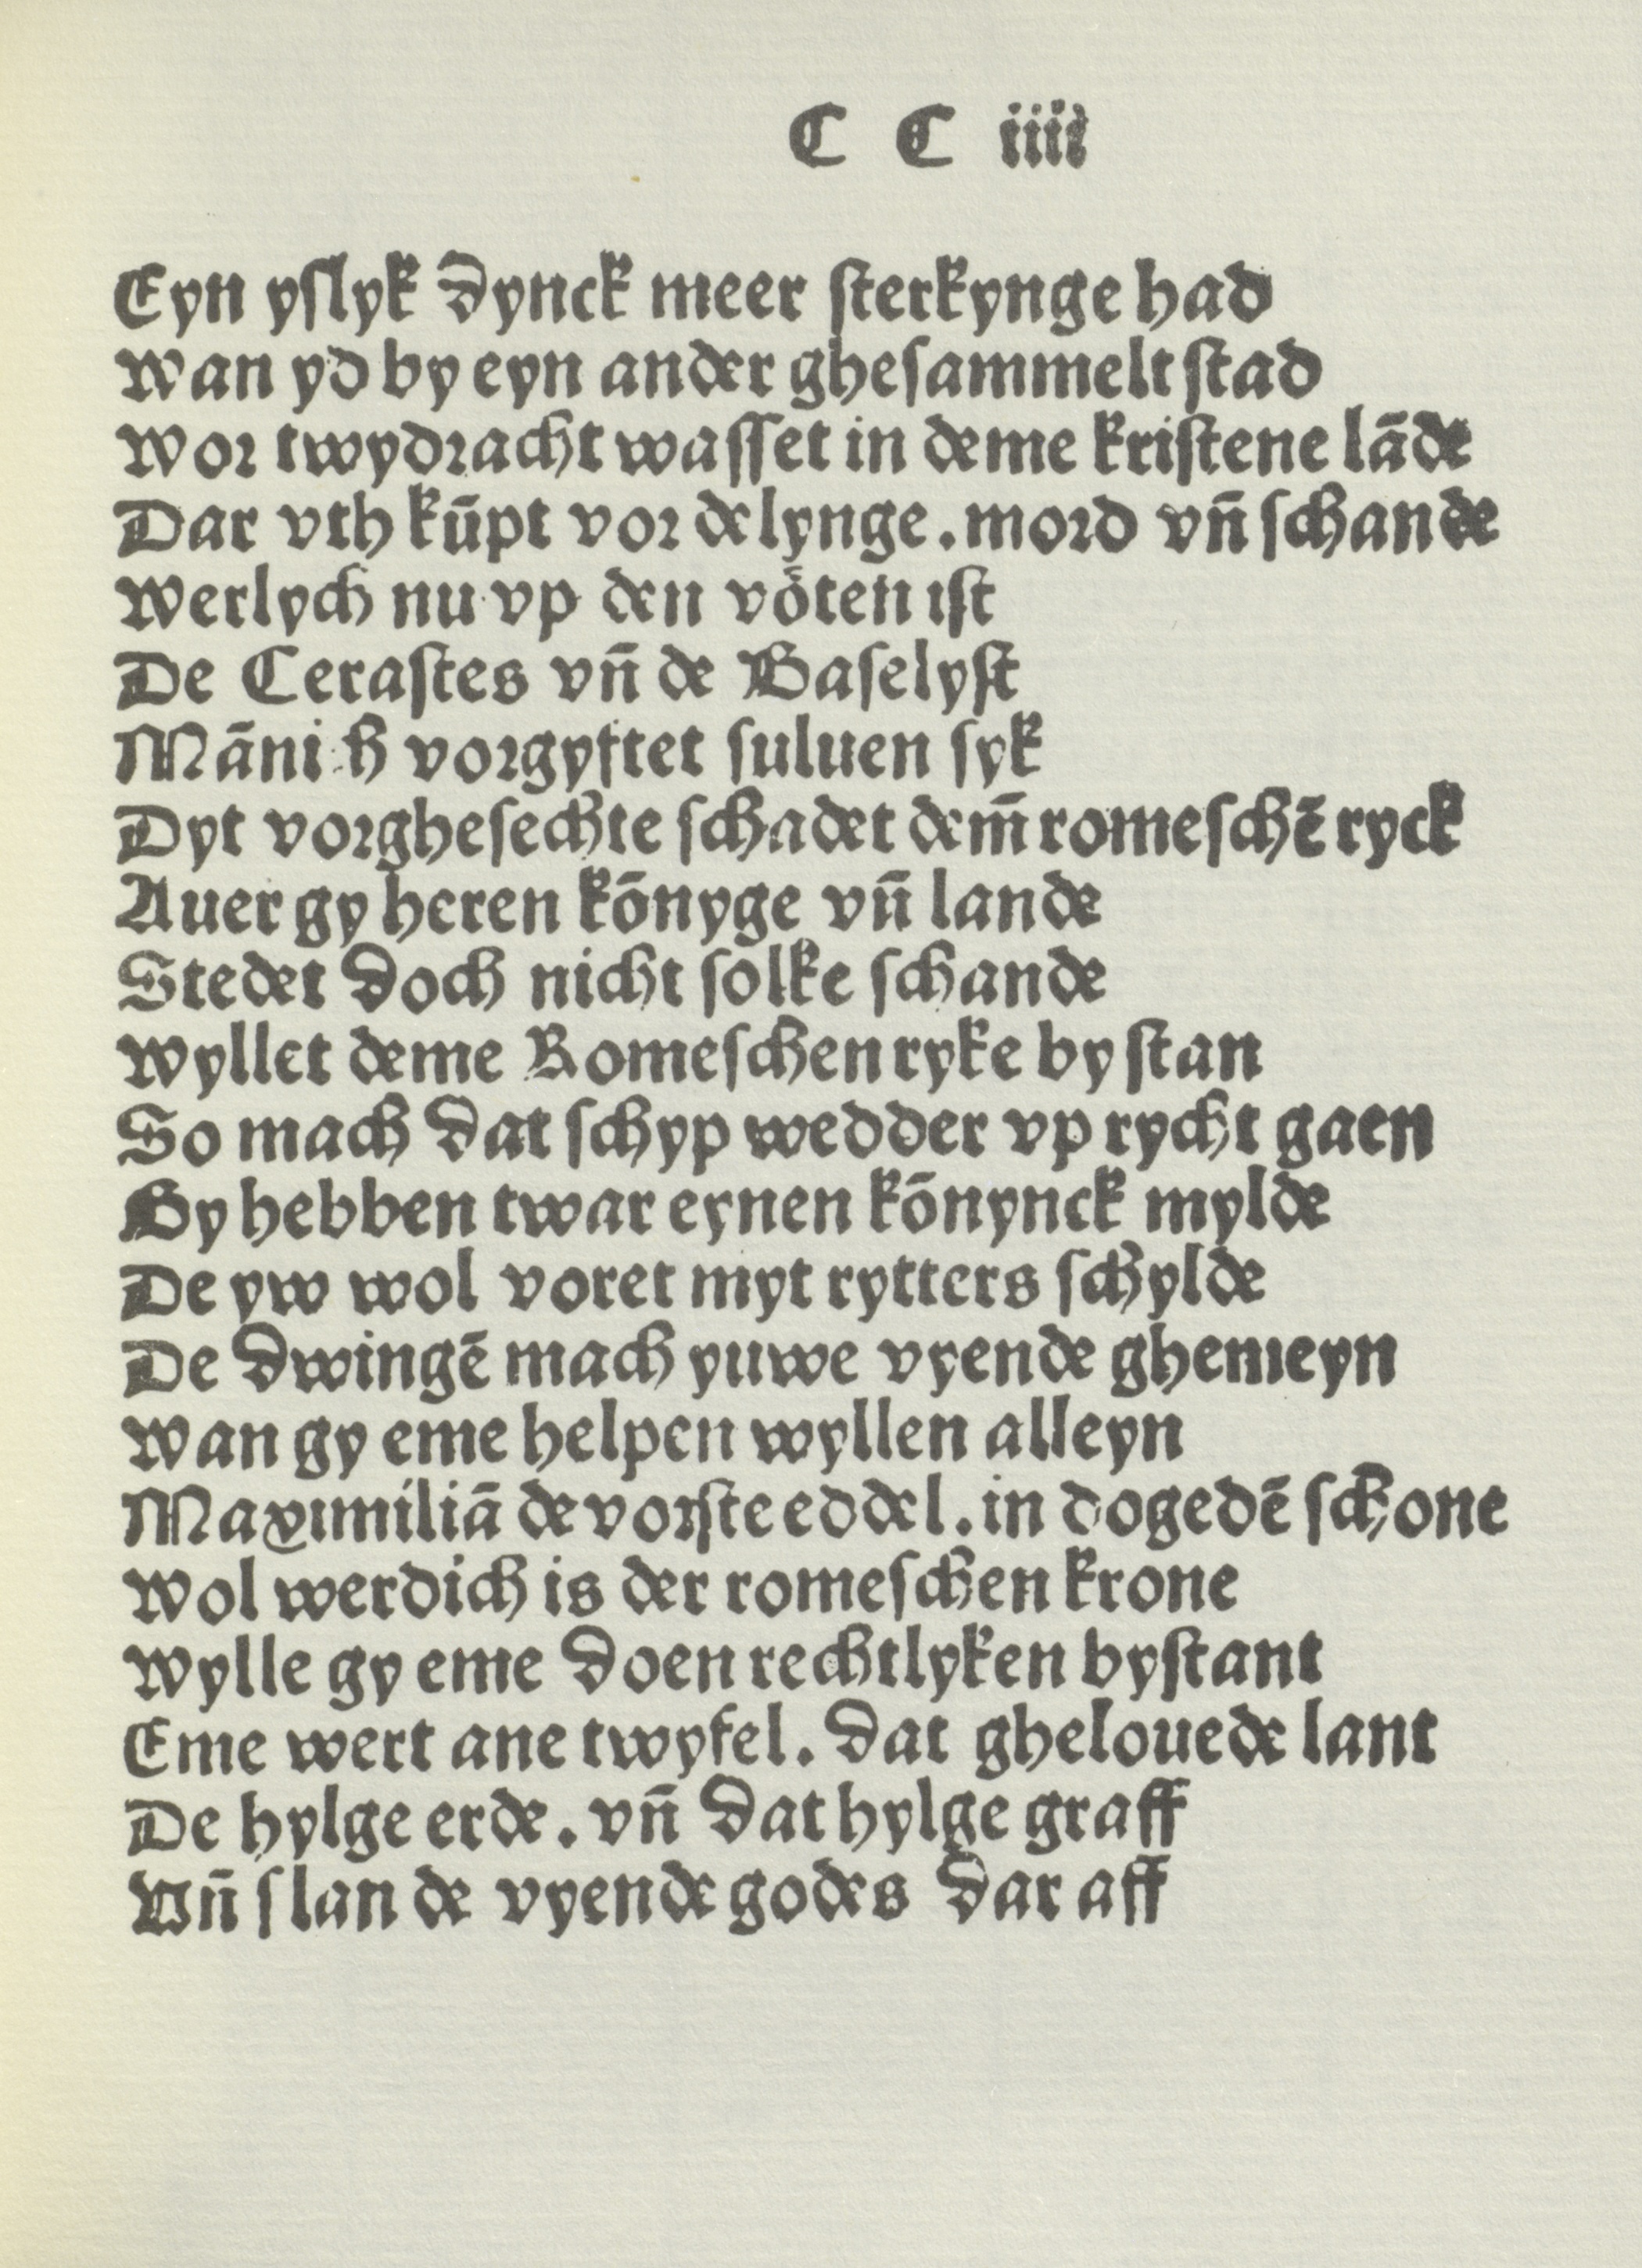 C C iiii
Eyn yſlyk dynck meer ſterkynge had
Wan yd by eyn ander gheſammelt ſtad
Wor twydracht waſſet in deme kriſtene lāde
Dar vth kūpt vordelynge. mord vn̄ ſchande
Werlych nu vp den vöten iſt
De Ceraſtes vn̄ de Baſelyſt
Māni ch vorgyftet ſuluen ſyk
Dyt vorgheſechte ſchadet dem̄ romeſchē ryck
Auer gy heren kōnyge vn̄ lande
Stedet doch nicht ſolke ſchande
Wyllet deme Romeſchen ryke by ſtan
So mach dat ſchyp wedder vp rycht gaen
Gy hebben twar eynen kōnynck mylde
De yw wol voret myt rytters ſchylde
De dwingē mach yuwe vyende ghemeyn
Wan gy eme helpen wyllen alleyn
Maximiliā de vorſte eddel. in dogedē ſchone
Wol werdich is der romeſchen krone
Wylle gy eme doen rechtlyken byſtant
Eme wert ane twyfel. dat ghelouede lant
De hylge erde. vn̄ dat hylge graff
Vn̄ ſlan de vyende godes dar aff